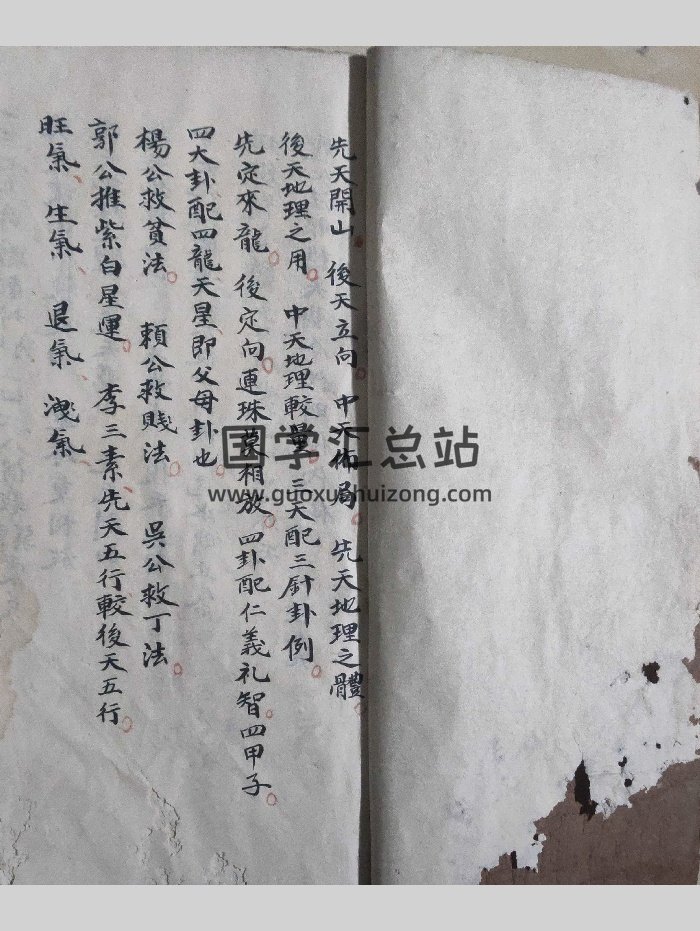 先天開山 後天立向 中天佈局 先天地理之體
後天地理之用 中天地理較量 三天配三針卦例
先定來龍 後定向連珠 相放 四卦配仁義礼智四甲子
四大卦配四龍天星即父母卦也
楊公救貧法 賴公救賤法 吳公救丁法
郭公推紫白星運 李三素先天五行較後天五行
旺氣 生氣 退氣 洩氣
国学汇总站
www.guoxuehuizong.com